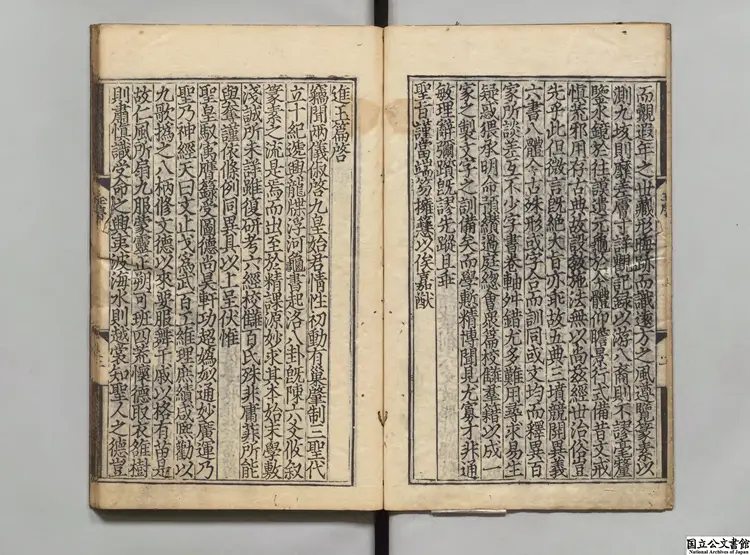 而觀遐年之世藏形晦跡而識遠方之風遺覽篆素以
測九垓則靡差層寸詳觀記錄以游八裔則不謬毫釐
鑒水鏡於往謨遺元龜於今體仰瞻景行式備昔文戒
慎荒邪用存古典故設教施法無以尚茲經世治俗豈
先乎此但微言既絕大旨亦乖故五典三墳競開異義
六書八體今古殊形或字各而訓同或文均而釋異百
家所談差互不少字書卷軸舛錯尤多難用尋求易生
疑惑猥承明命預纘過庭總會衆篇校讎羣籍以成一
家之製文字之訓備矣而學慙精博聞見尤寡才非通
敏理辭彌躓既謬先蹤且乖
聖旨謹當端笏擁篲以俟嘉猷
進玉篇啓
竊聞兩儀俶啓九皇始君情性初動有巢肇制三聖代
立十紀遞興龍牒浮河龜書起洛八卦既陳六爻攸敘
篆素之流是焉而出至於精課源妙求其本始末學敷
淺誠所未詳雖復研考六經校讎百氏殊非庸菲所能
與奪謹依條例同異具以上呈伏惟
聖皇馭寓膺籙受圖德尚昊軒功超嬀姒通妙廣運乃
聖乃神經天曰文止戈爲武百工維理庶績咸熙勸以
九歌擾之八柄修文德以來異服舞干戚以格有苗是
故仁風所扇九服蒙靈正朔可班四荒懷德取衣雒樹
則肅慎識受命之興夷波海水則越裳知聖人之德豈
国立公文書館
National Archives of Japan